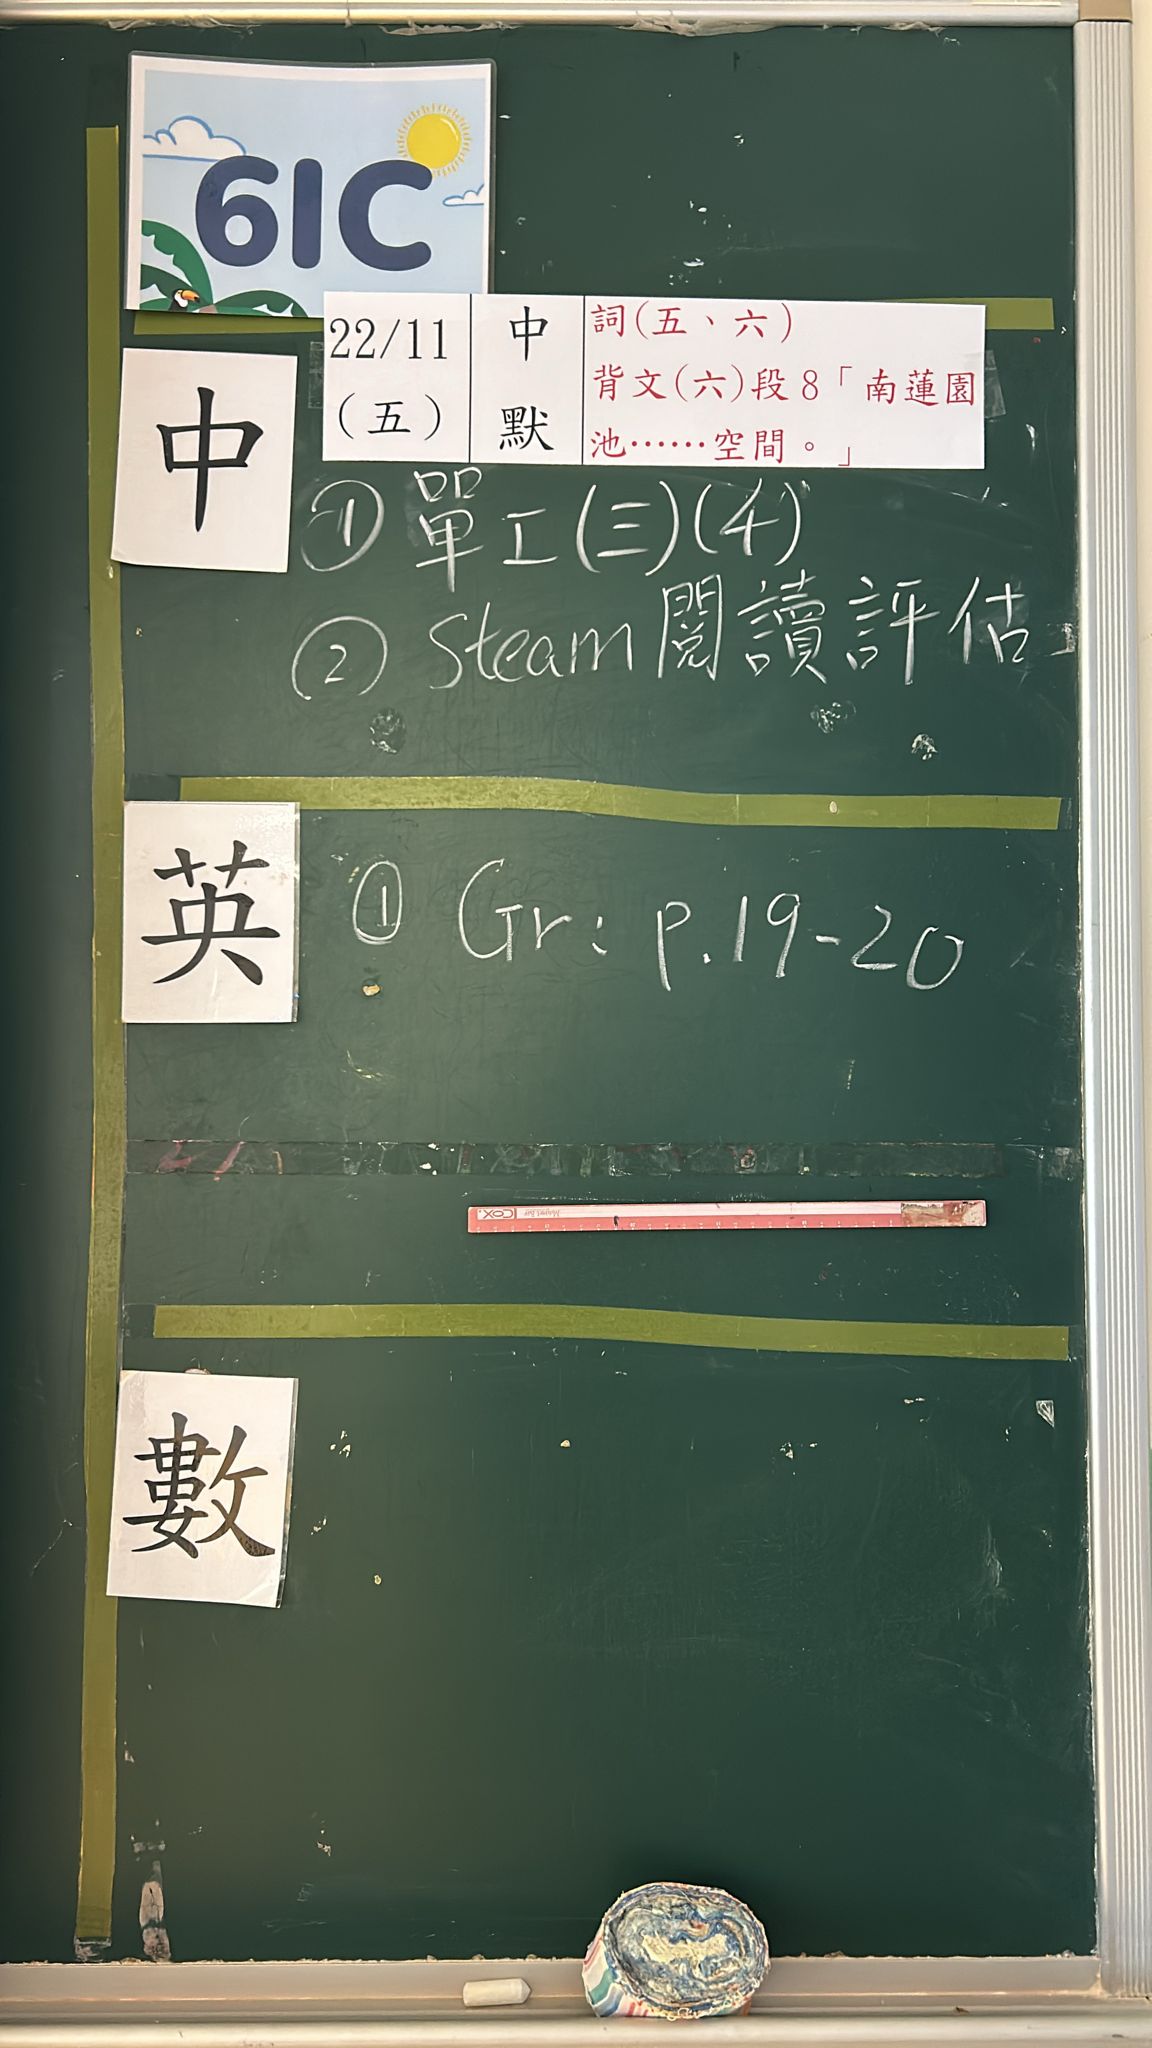 6IC
22/11
(五)
中
默
詞(五、六)
背文(六)段8「南蓮園
池⋯⋯空間。」
中
① 單工(三)(4)
② Steam閱讀評估
英
① Gr: p.19-20
COX
數